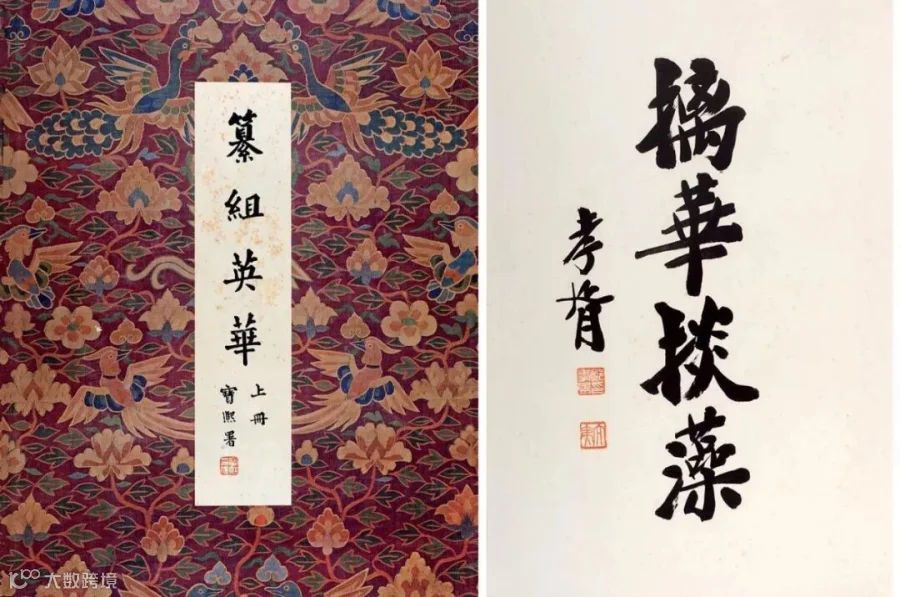 纂組英華
上冊
寶熙署
摛華掞藻
孝胥
大数跨境